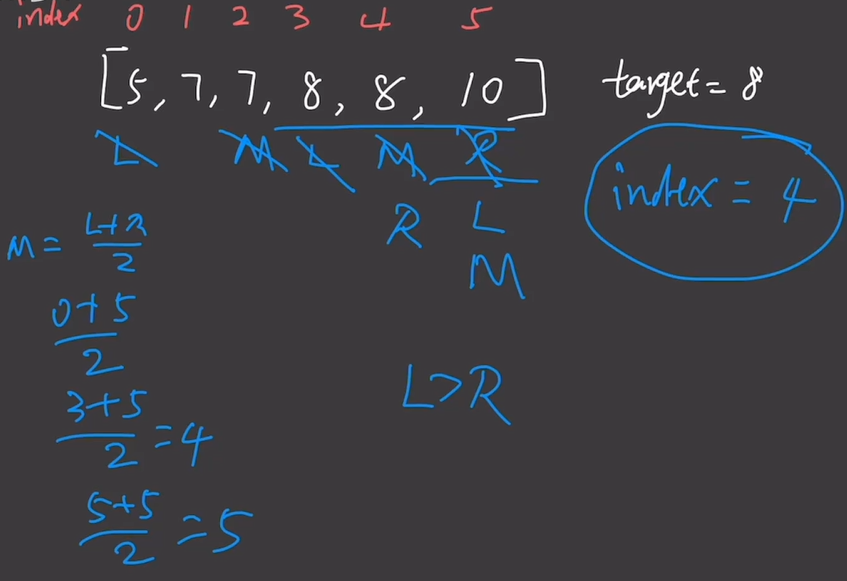 index 0 1 2 3 4 5
[5, 7, 7, 8, 8, 10] target = 8
L M L M R
index = 4
R L
M = L+R/2
M
0+5/2
L>R
3+5/2 = 4
5+5/2 = 5